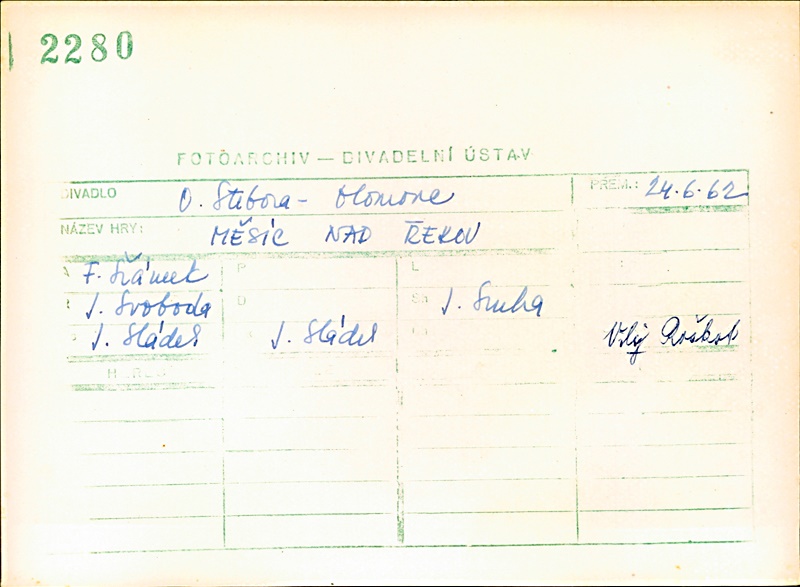 2280
FOTOARCHIV — DIVADELNÍ ÚSTAV
DIVADLO O. Stibora - Olomouc PREM.: 24.6.62
NÁZEV HRY: MĚSÍC NAD ŘEKOU
A F. Šrámek P L
J. Svoboda D J. Sucha
J. Sládek J. Sládek Vilý Roškot